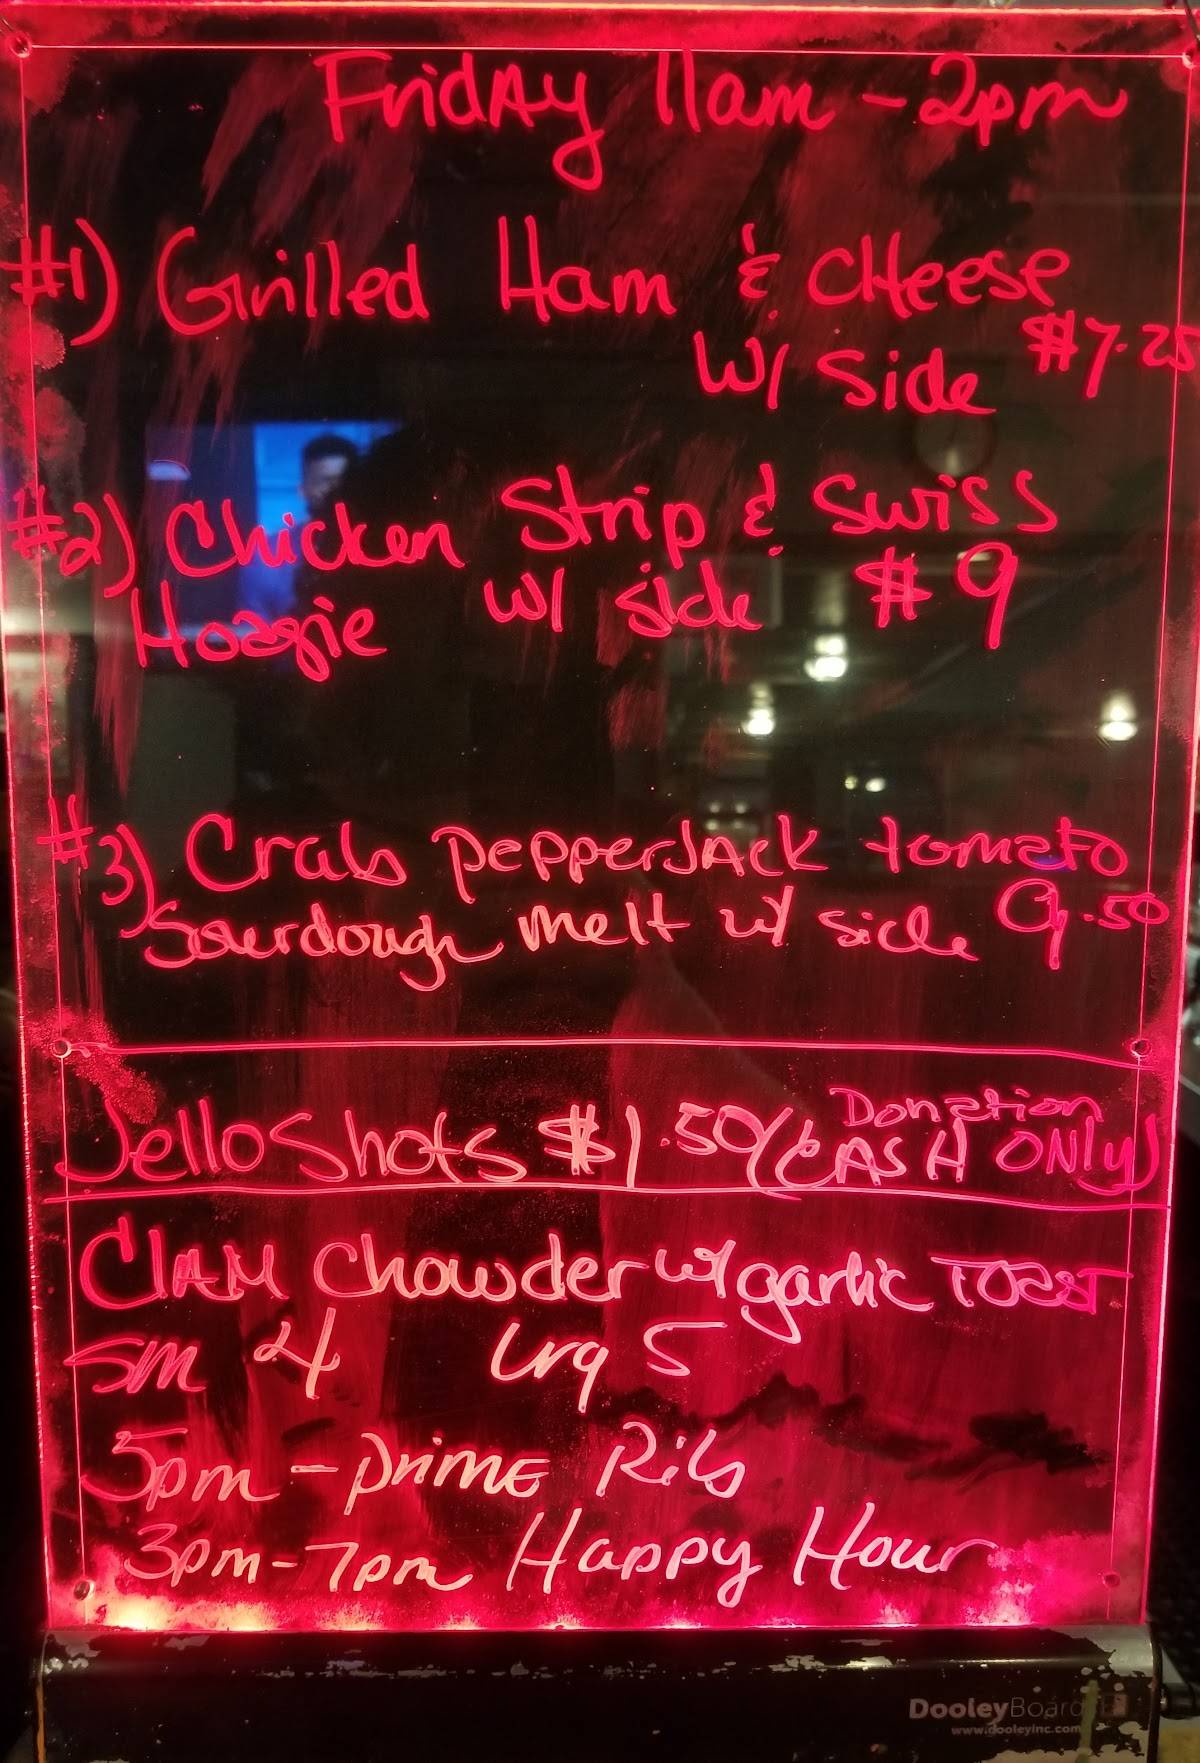 Friday 11am - 2pm
#1) Grilled Ham & Cheese
w/ side $7.25
#2) Chicken Strip & Swiss
Hoagie w/ side $9
#3) Crab pepperJack tomato
Sourdough melt w/ side 9.50
Donation
Jello Shots $1.50 (CASH ONLY)
Clam Chowder w/ garlic Toast
sm 4 Lrg 5
5pm - prime Rib
3pm - 7pm Happy Hour
DooleyBoard
www.dooleyinc.com